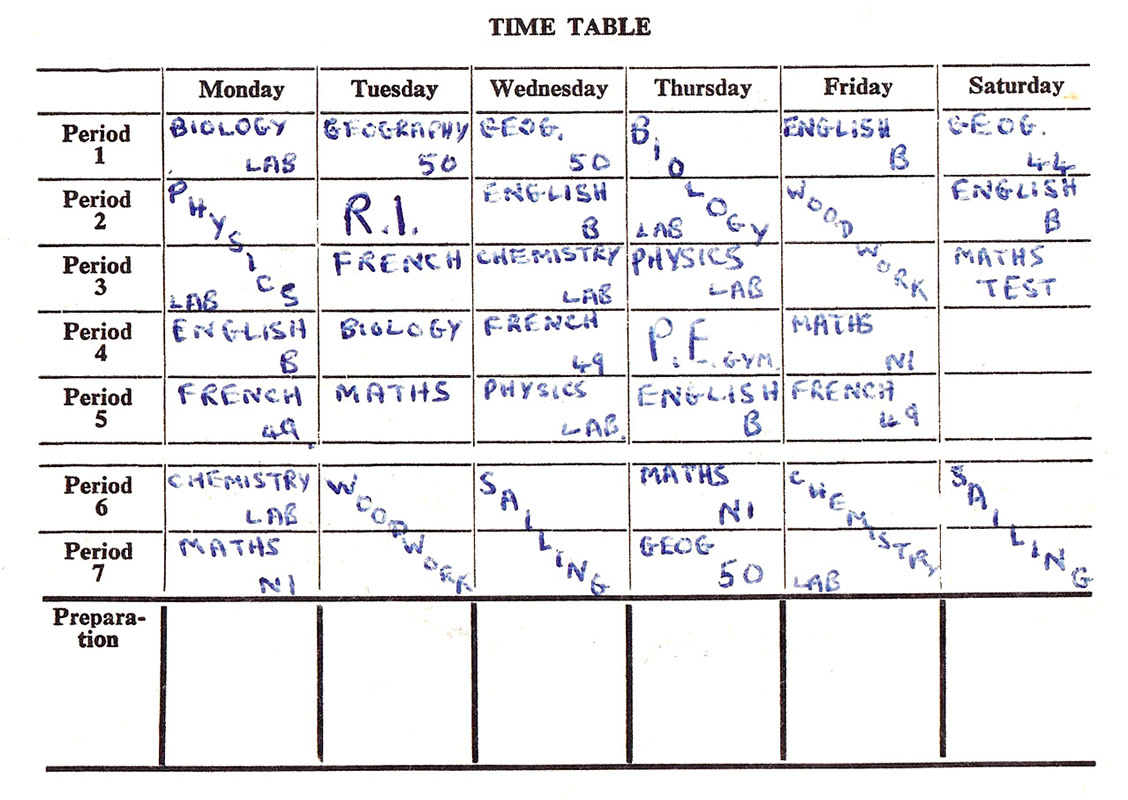 TIME TABLE
Monday Tuesday Wednesday Thursday Friday Saturday
Period 1 BIOLOGY LAB GEOGRAPHY 50 GEOG. 50 BIOLOGY LAB ENGLISH B GEOG. 44
Period 2 PHYSICS LAB R.I. ENGLISH B WOODWORK ENGLISH B
Period 3 FRENCH CHEMISTRY LAB PHYSICS LAB MATHS TEST
Period 4 ENGLISH B BIOLOGY FRENCH 49 P.E. GYM. MATHS N1
Period 5 FRENCH 49 MATHS PHYSICS LAB. ENGLISH B FRENCH 49
Period 6 CHEMISTRY LAB WOODWORK SAILING MATHS N1 CHEMISTRY LAB SAILING
Period 7 MATHS N1 GEOG 50
Prepara-
tion